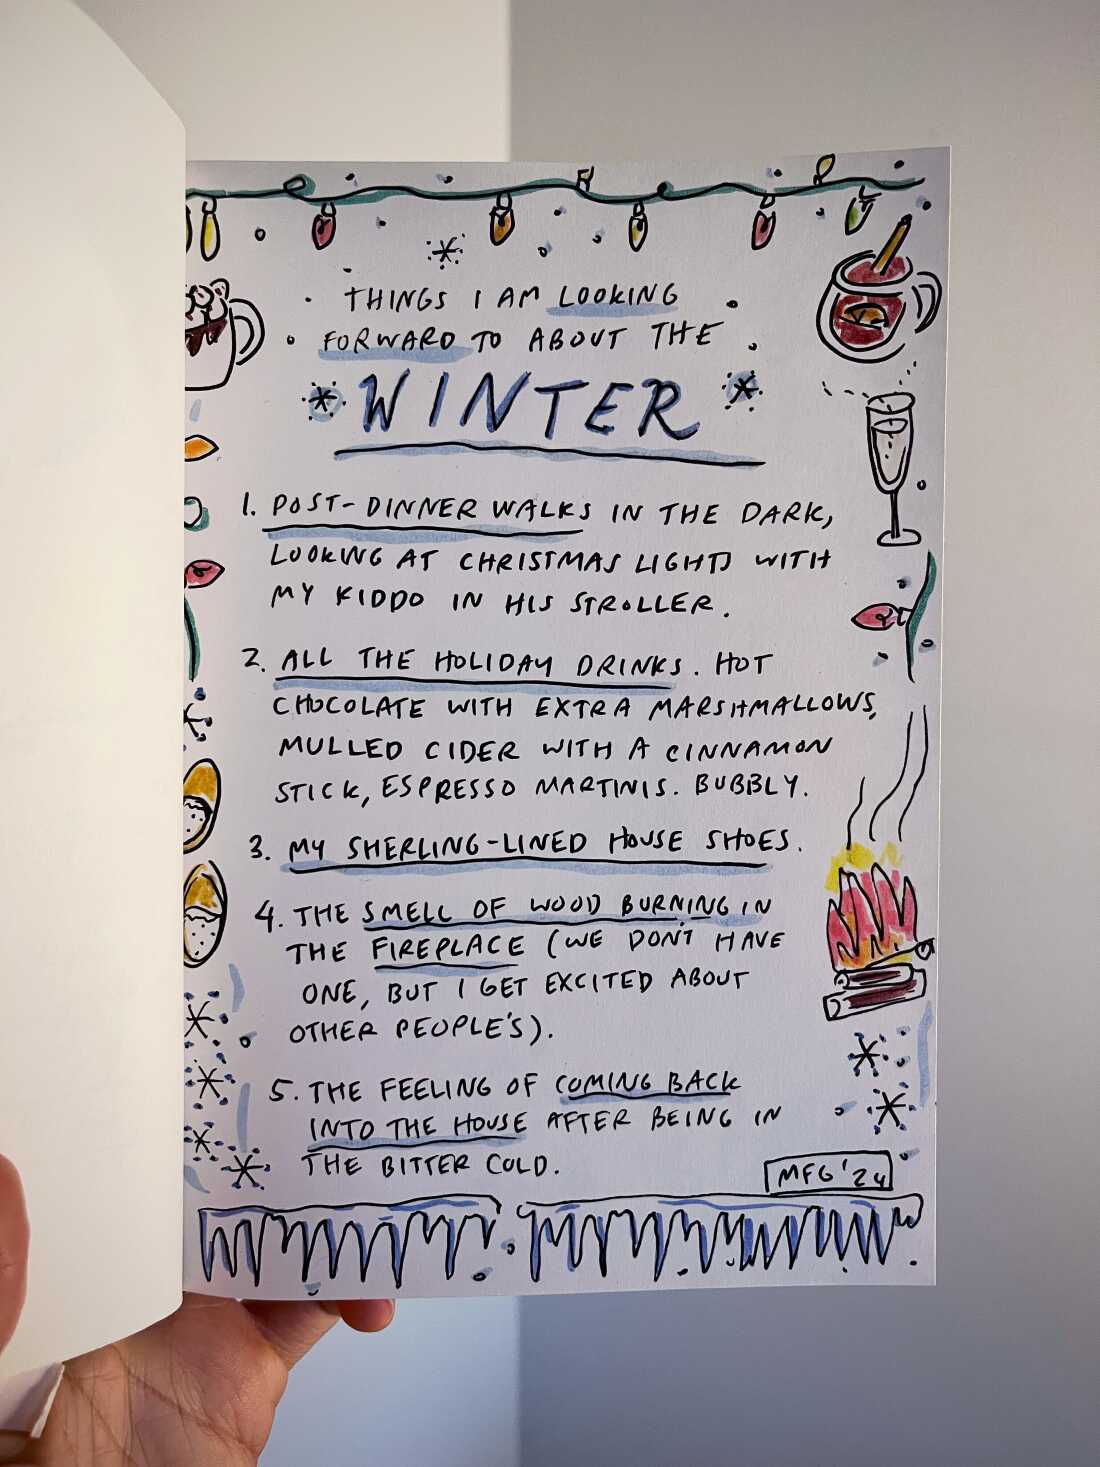 THINGS I AM LOOKING
FORWARD TO ABOUT THE
WINTER
1. POST-DINNER WALKS IN THE DARK,
LOOKING AT CHRISTMAS LIGHTS WITH
MY KIDDO IN HIS STROLLER.
2. ALL THE HOLIDAY DRINKS. HOT
CHOCOLATE WITH EXTRA MARSHMALLOWS,
MULLED CIDER WITH A CINNAMON
STICK, ESPRESSO MARTINIS. BUBBLY.
3. MY SHERLING-LINED HOUSE SHOES.
4. THE SMELL OF WOOD BURNING IN
THE FIREPLACE (WE DON'T HAVE
ONE, BUT I GET EXCITED ABOUT
OTHER PEOPLE'S).
5. THE FEELING OF COMING BACK
INTO THE HOUSE AFTER BEING IN
THE BITTER COLD.
MFG '24